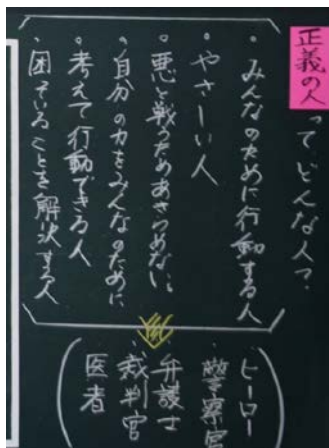 正義の人ってどんな人?
・みんなのために行動する人
・やさしい人
・悪と戦うためあきらめない。
・自分の力をみんなのために
・考えて行動できる人
・困っていることを解決する人
ヒーロー
警察官
弁護士
裁判官
医者